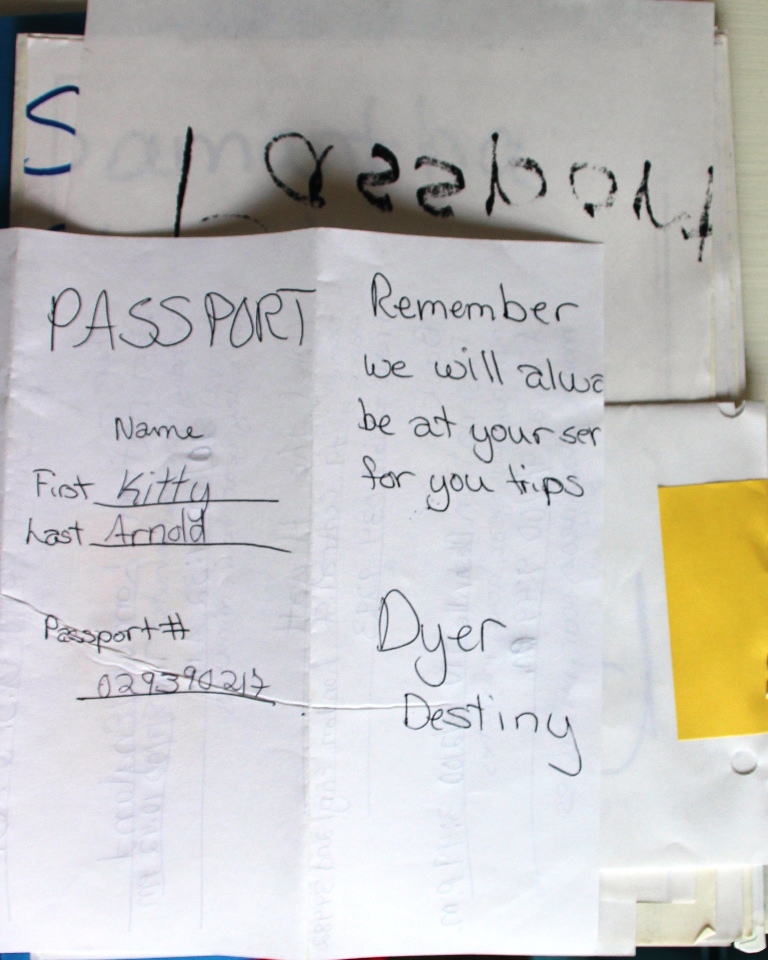 Passport
PASSPORT
Name
First Kitty
Last Arnold
Passport #
029390217
Remember
we will alwa
be at your ser
for you trips
Dyer
Destiny